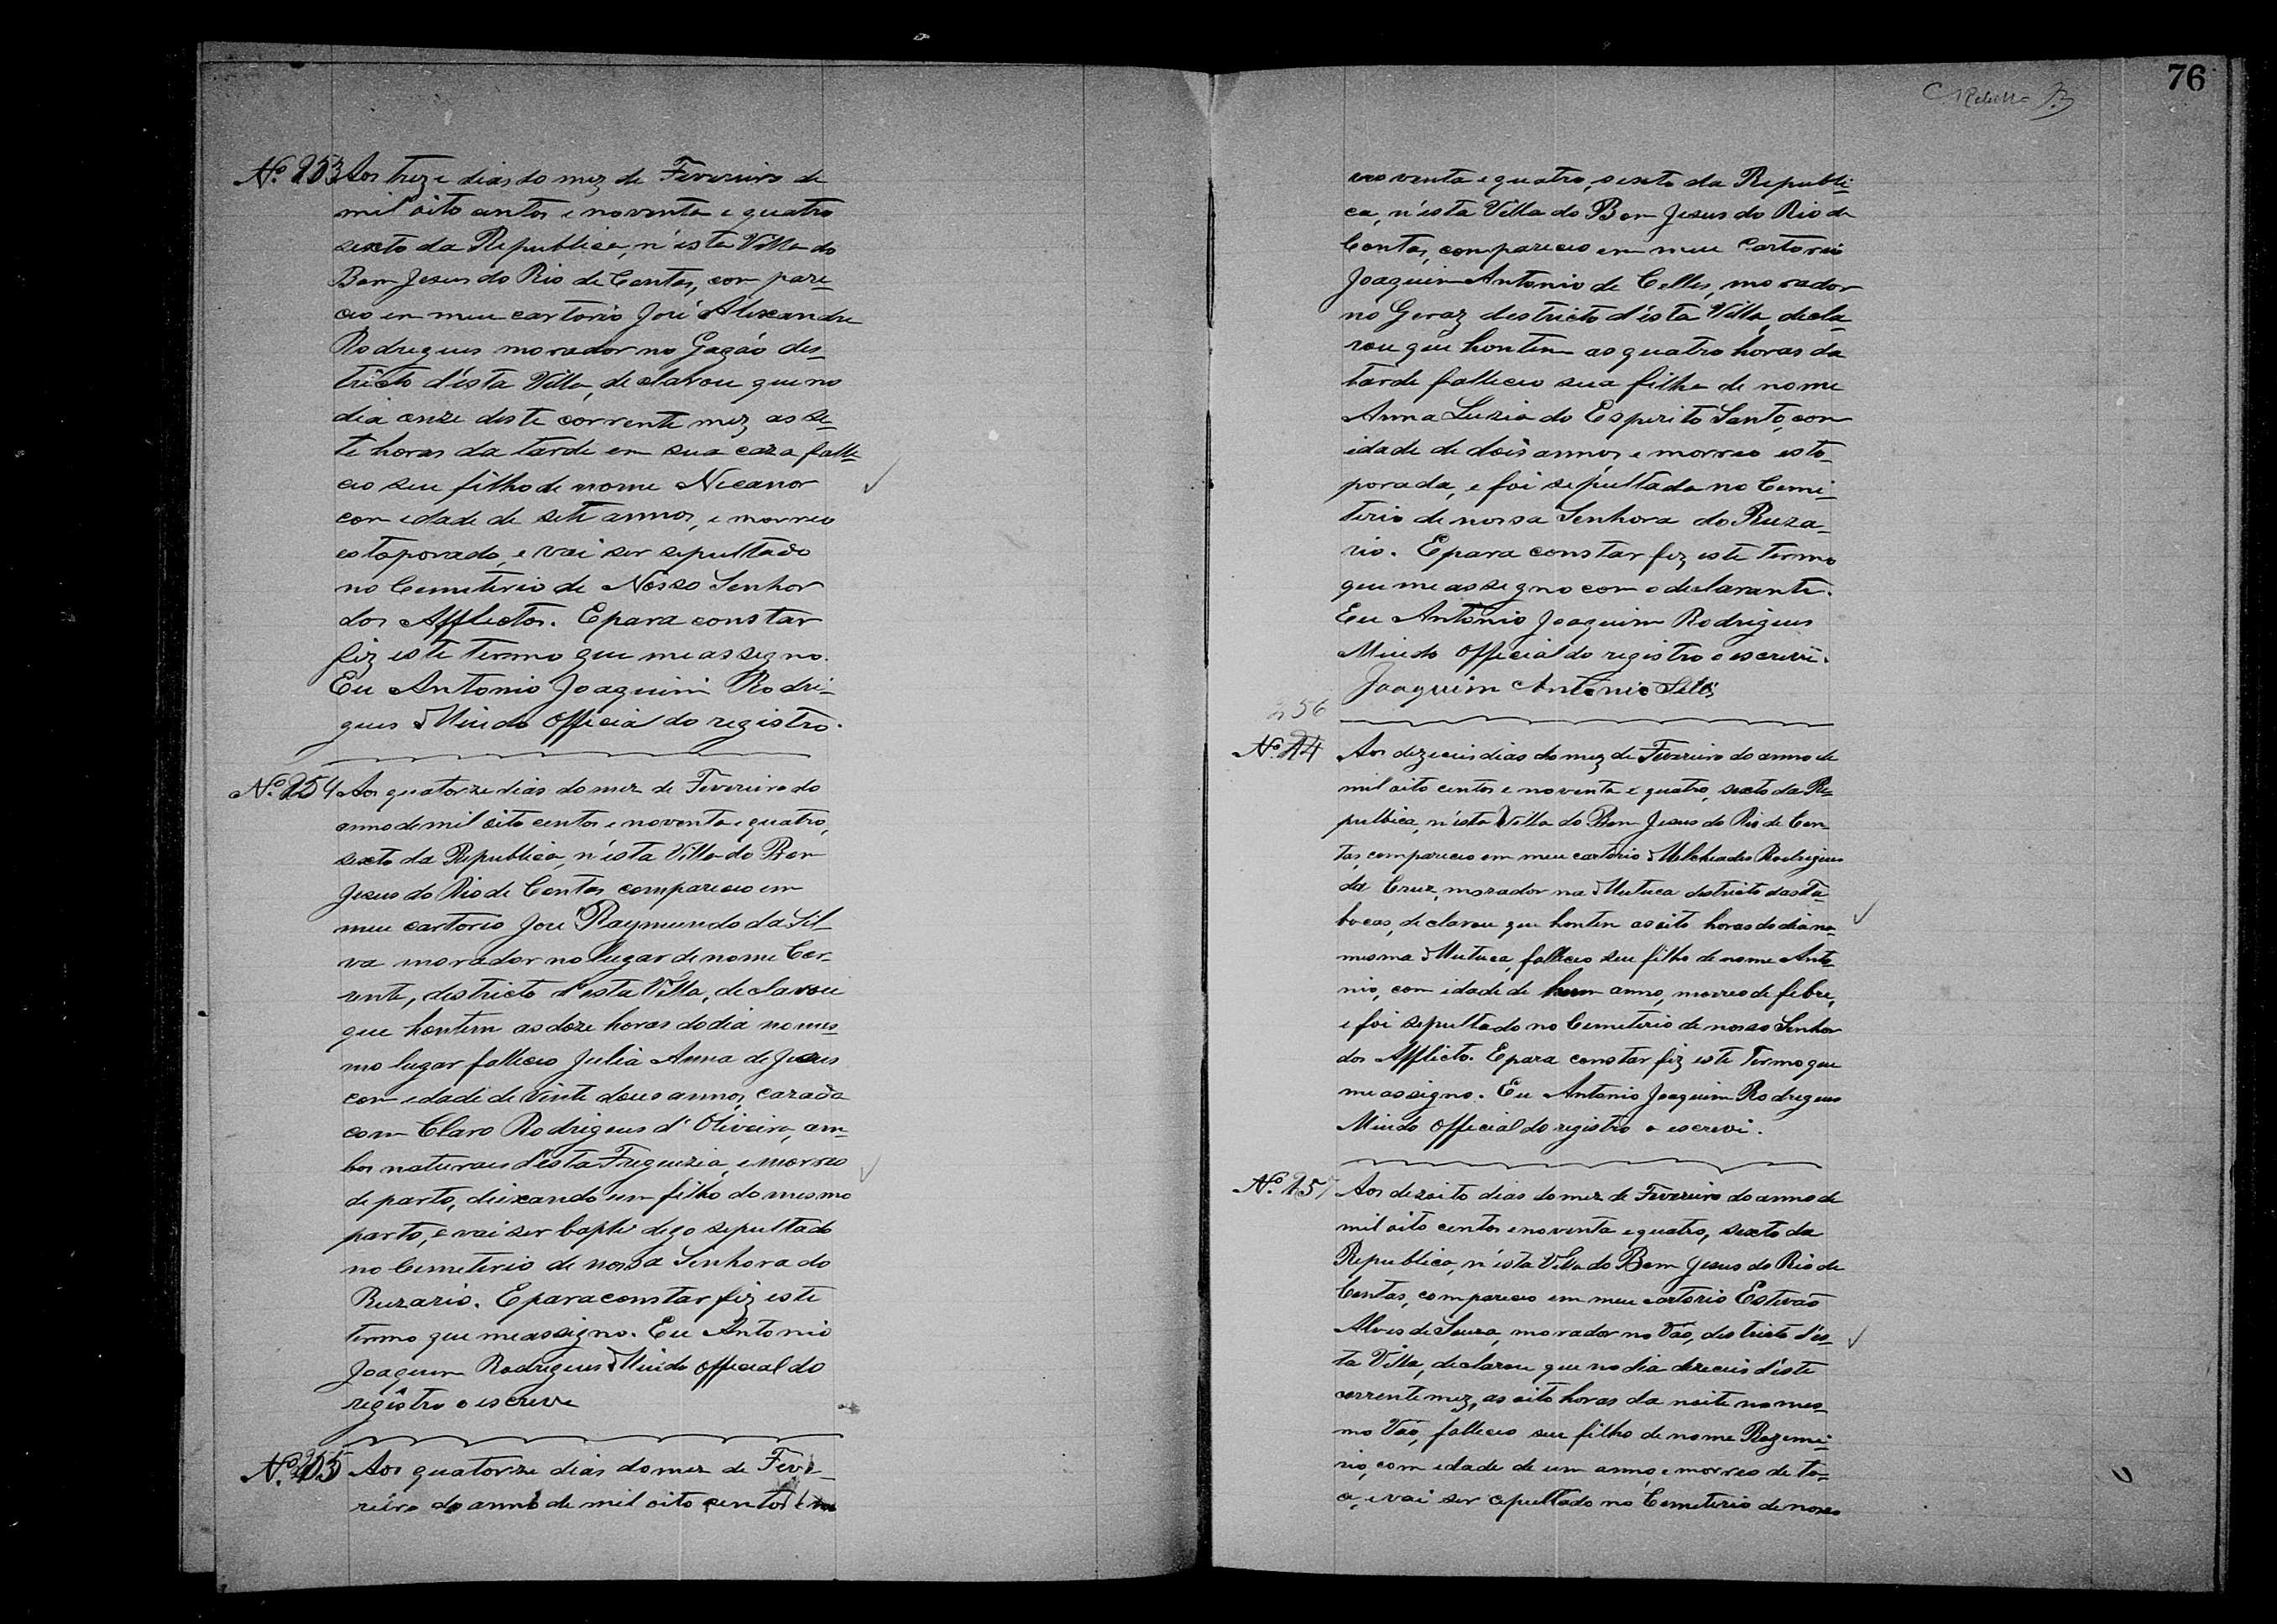 Nº 253 Aos treze dias do mez de Fevereiro de
mil oito centos e noventa e quatro
sexto da Republica, n'esta Villa do
Bom Jesus do Rio de Contas, compare-
ceo em meu cartorio José Alexandre
Rodrigues morador no Gazão des-
tricto d'esta Villa, declarou que no
dia onze deste corrente mez, as se-
te horas da tarde em sua caza falle-
ceo seu filho de nome Nicanor
com edade de sete annos, e morreo
estoporado, e vai ser sepultado
no Cemeterio de Nosso Senhor
dos Afflictos. E para constar
fiz este termo que me assegno.
Eu Antonio Joaquim Rodri-
gues Official do registro.
Nº 254 Aos quatorze dias do mez de Fevereiro do
anno de mil oito centos e noventa e quatro,
sexto da Republica, n'esta Villa do Bom
Jesus do Rio de Contas compareceo em
meu cartorio José Raymundo da Sil-
va morador no lugar de nome Cor-
rente, destricto d'esta Villa, declarou
que hontem as doze horas do dia no mes-
mo lugar falleceo Julia Anna de Jesus
com edade de vinte dous annos, cazada
com Claro Rodrigues d'Oliveira, am-
bos naturaes d'esta Freguezia, e morreo
de parto, deixando um filho do mesmo
parto, e vai ser digo sepultado
no Cemeterio de nossa Senhora do
Ruzario. E para constar fiz este
termo que me assigno. Eu Antonio
Joaquim Rodrigues Official do
registro o escrevi
Nº 255 Aos quatorze dias do mez de Feve-
reiro do anno de mil oito centos e no
76
venta e quatro, sexto da Republi-
ca, n'esta Villa do Bom Jesus do Rio de
Contas, compareceo em meu Cartorio
Joaquim Antonio de Celles, morador
no Geraz destricto d'esta Villa, decla-
rou que hontem as quatro horas da
tarde falleceo sua filha de nome
Anna Luzia do Esperito Santo, com
idade de dois annos, e morreo esto-
porada, e foi sepultada no Cemi-
terio de nossa Senhora do Ruza-
rio. E para constar fiz este termo
que me assegno com o declarante.
Eu Antonio Joaquim Rodrigues
Official do registro o escrevi.
Joaquim Antonio
256
Nº Aos dezeceis dias do mez de Fevereiro do anno de
mil oito centos e noventa e quatro, sexto da Re-
publica, n'esta Villa do Bom Jesus do Rio de Con-
tas, compareceo em meu cartorio Melchiades Rodrigues
da Cruz, morador na Mutuca destricto das Ta-
bocas, declarou que hontem as oito horas do dia na
mesma Mutuca, falleceo seu filho de nome Anto-
nio, com idade de hum anno, morreo de febre,
e foi sepultado no Cemeterio de nosso Senhor
dos Afflicto. E para constar fiz este Termo que
me assigno. Eu Antonio Joaquim Rodrigues
Official do registro o escrevi.
Nº 257 Aos dezoito dias do mez de Fevereiro do anno de
mil oito centos e noventa e quatro, sexto da
Republica, n'esta Villa do Bom Jesus do Rio de
Contas, compareceo em meu cartorio Estevão
Alves de Souza, morador no Vão, destricto d'es-
ta Villa, declarou que no dia dezeceis d'este
corrente mez, as oito horas da noite no mes-
mo Vão, falleceo seu filho de nome Rozemi-
rio, com edade de um anno, e morreo de to-
ce, e vai ser cepultado no Cemeterio de nosso